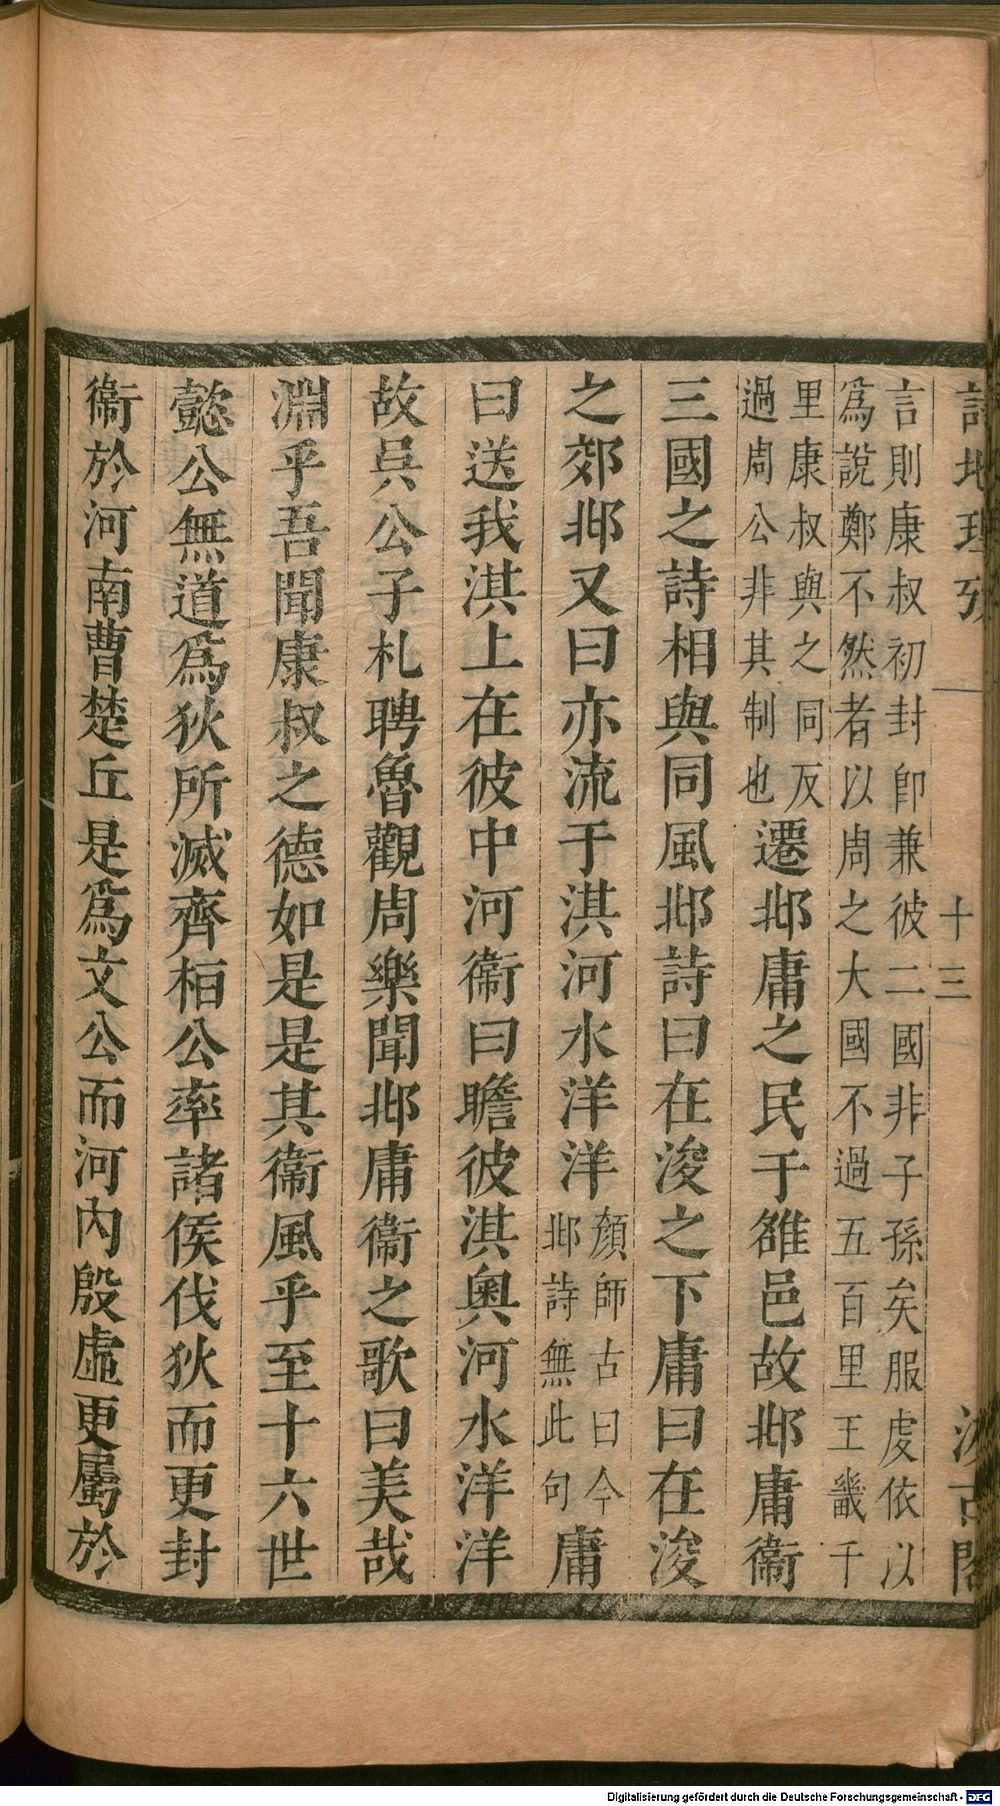 詩地理攷 一 十三 汲古閣
言則康叔初封卽兼彼二國非子孫矣服虔依以
爲說鄭不然者以周之大國不過五百里王畿千
里康叔與之同反
過周公非其制也
遷邶庸之民于雒邑故邶庸衞
三國之詩相與同風邶詩曰在浚之下庸曰在浚
之郊邶又曰亦流于淇河水洋洋
顏師古曰今
邶詩無此句
庸
曰送我淇上在彼中河衞曰瞻彼淇奧河水洋洋
故吳公子札聘魯觀周樂聞邶庸衞之歌曰美哉
淵乎吾聞康叔之德如是是其衞風乎至十六世
懿公無道爲狄所滅齊桓公率諸侯伐狄而更封
衞於河南曹楚丘是爲文公而河內殷虛更屬於
Digitalisierung gefördert durch die Deutsche Forschungsgemeinschaft - DFG